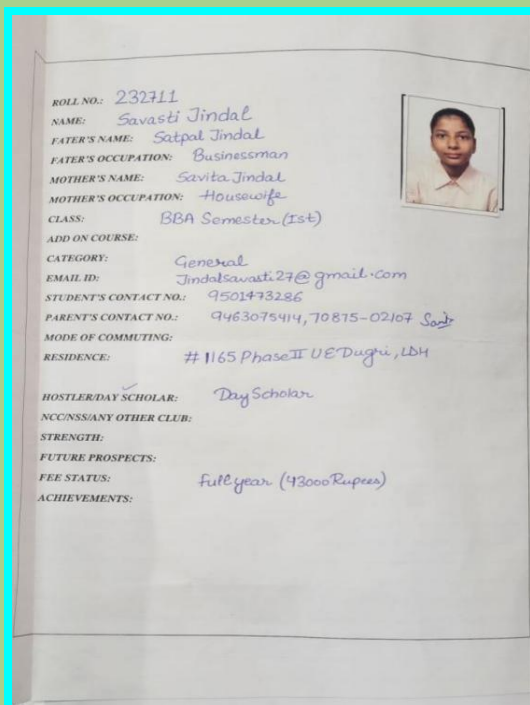 ROLL NO.: 232711
NAME: Savasti Jindal
FATER'S NAME: Satpal Jindal
FATER'S OCCUPATION: Businessman
MOTHER'S NAME: Savita Jindal
MOTHER'S OCCUPATION: Housewife
CLASS: BBA Semester (Ist)
ADD ON COURSE:
CATEGORY: General
EMAIL ID: Jindalsavasti27@gmail.com
STUDENT'S CONTACT NO.: 9501473286
PARENT'S CONTACT NO.: 9463075414, 70875-02107
MODE OF COMMUTING:
RESIDENCE: # 1165 Phase II UE Dugri, LDH
HOSTLER/DAY SCHOLAR: Day Scholar
NCC/NSS/ANY OTHER CLUB:
STRENGTH:
FUTURE PROSPECTS:
FEE STATUS: Full year (43000 Rupees)
ACHIEVEMENTS: